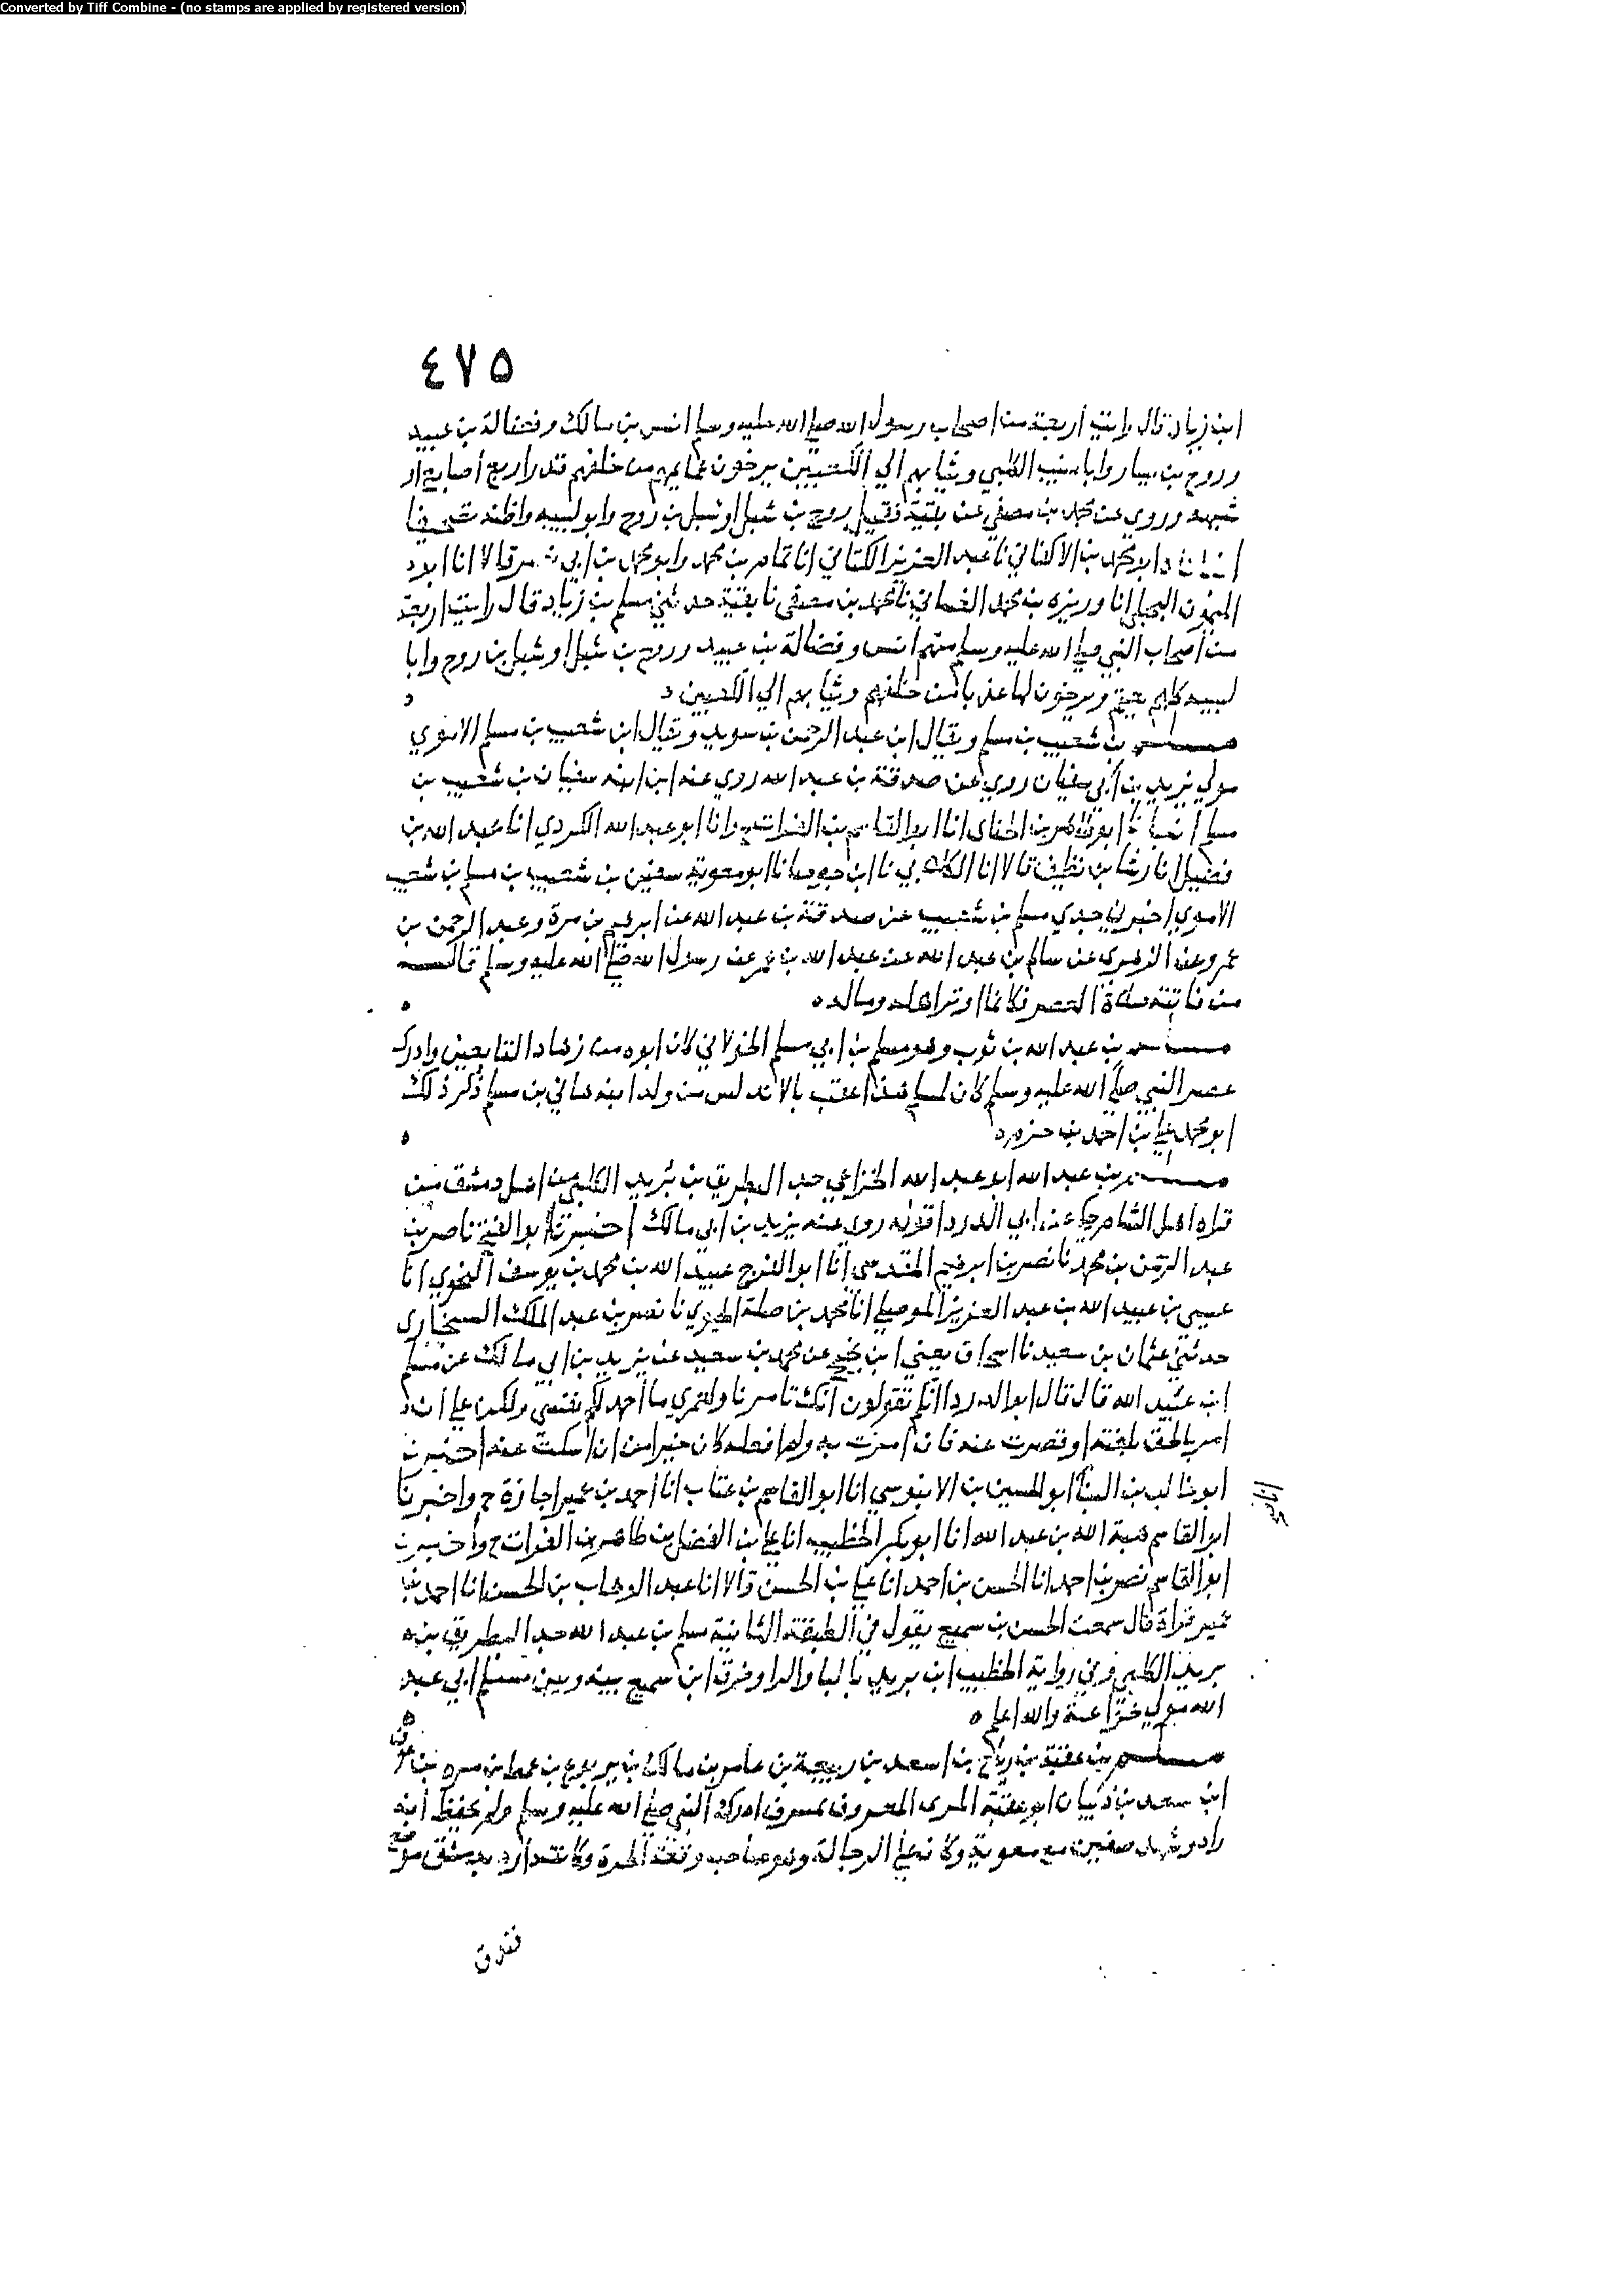 Converted by Tiff Combine - (no stamps are applied by registered version)
٤٧٥
ابن زياد قال رايت اربعة من اصحاب رسول الله صلى الله عليه وسلم انس بن مالك وفضالة بن عبيد
وروح بن سيار وابا منيب الكلبي وثيابهم الي الكعبين يرخون عمايمهم من خلفهم قدر اربع أصابع او
شبهه وروي عن محمد بن مصفي عن بقية فقيل روح بن شبل او شبل بن روح وابو لبيبه واظنه تصحيفا
ابو محمد بن الاكفاني نا عبد العزيز الكتاني انا تمام بن محمد وابو محمد بن ابي نصر قالا انا ابو
الميمون البجلي انا وريزه بن محمد الغساني نا محمد بن مصفى نا بقية حدثني مسلم بن زياد قال رايت اربعة
من أصحاب النبي صلى الله عليه وسلم منهم أنس وفضالة بن عبيد وروح بن شبل او شبل بن روح وابا
لبيبه كلهم يعتم ويرخون لها عذبا من خلفهم وثيابهم الي الكعبين
مسلم بن شعيب بن مسلم ويقال ابن عبد الرحمن بن سويد ويقال ابن شعيب بن مسلم الاموي
مولي يزيد بن أبي سفيان روي عن صدقة بن عبد الله روي عنه ابن ابنه سفيان بن شعيب بن
مسلم ابو طاهر بن الحنائي انا ابو القاسم بن الفرات ح وانا ابو عبد الله الكردي انا عبد الله بن
فضيل انا رشا بن نظيف قالا انا الكلابي نا ابن جوصا نا ابو معوية سفين بن شعيب بن مسلم بن شعيب
الاموي اخبرني جدي مسلم بن شعيب عن صدقة بن عبد الله عن ابرهيم بن مرة وعبد الرحمن بن
عمرو عن الزهري عن سالم بن عبد الله عن عبد الله بن عمر عن رسول الله صلى الله عليه وسلم قال
من فاتته صلاة العصر فكانما وتر اهله وماله
مسلم بن عبد الله بن ثوب وهو مسلم بن ابي مسلم الخولاني كان ابوه من زهاد التابعين وادرك
عصر النبي صلى الله عليه وسلم كان لمسلم هذا عقب بالاندلس من ولد ابنه هاني بن مسلم ذكر ذلك
ابو محمد علي بن احمد بن حزم
مسلم بن عبد الله ابو عبد الله الخزاعي جد البطريق بن يزيد الكلبي من اهل دمشق من
قراء اهل الشام حكى عن ابي الدرداء قوله روي عنه يزيد بن ابي مالك اخبرنا ابو الفتح ناصر بن
عبد الرحمن بن محمد نا نصر بن ابرهيم المقدسي انا ابو الفرج عبيد الله بن محمد بن يوسف النحوي انا
عيسى بن عبيد الله بن عبد العزيز الموصلي انا محمد بن صلة الحيري نا نصر بن عبد الملك السنجاري
حدثني عثمان بن سعيد نا اسحاق يعني ابن نجيح عن محمد بن سعيد عن يزيد بن ابي مالك عن مسلم
ابن عبيد الله قال قال ابو الدرداء انكم تقولون انك تامرنا ولعمري ما أحمد لكم نفسي ولكن على أن
امر بالحق بلغته او قصرت عنه فان امرت به ولم افعله كان خيرا من ان اسكت عنه اخبرنا
ابو غالب بن البنا ابو الحسين بن الابنوسي انا ابو القاسم بن عتاب انا احمد بن عمير اجازة ح واخبرنا
ابو القاسم هبة الله بن عبد الله انا ابو بكر الخطيب انا علي بن الفضل بن طاهر بن الفرات ح واخبرنا
ابو القاسم نصر بن احمد انا الحسن بن احمد انا علي بن الحسن قالا انا عبد الوهاب بن الحسن انا احمد بن
عمير قراة قال سمعت الحسن بن سميع يقول في الطبقة الثانية مسلم بن عبد الله جد البطريق بن
بريد الكلبي وفي رواية الخطيب ابن بريد بالبا والرا وفرق ابن سميع بينه وبين مسلم ابي عبد
الله مولي خزاعة والله اعلم
مسلم بن عقبة بن رباح بن اسعد بن ربيعة بن عامر بن مالك بن يربوع بن غيظ بن مره بن عوف
ابن سعد بن ذبيان ابو عقبة المري المعروف بمسرف ادرك النبي صلى الله عليه وسلم ولم يحفظ أنه
راه وشهد صفين مع معوية وكان على الرجالة وهو صاحب وقعة الحرة وكانت داره بدمشق موضع
فندق